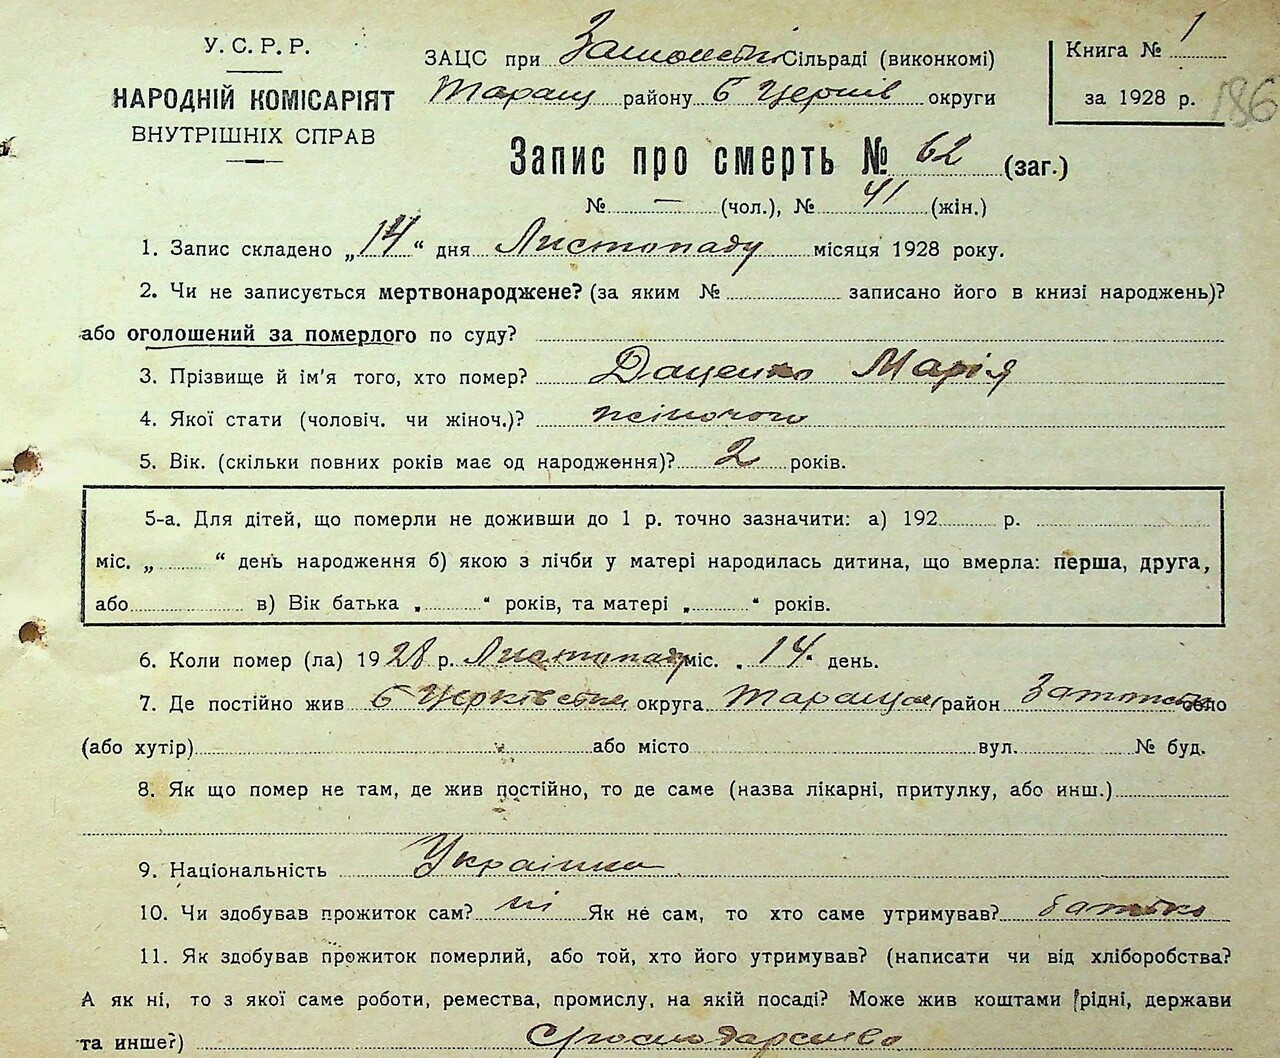 У. С. Р. Р.
НАРОДНІЙ КОМІСАРІЯТ
ВНУТРІШНІХ СПРАВ
ЗАЦС при Сільраді (виконкомі)
Таращ району Б Церків округи
Книга № 1
за 1928 р. 186
Запис про смерть № 62 (заг.)
№ — (чол.), № 41 (жін.)
1. Запис складено „14“ дня Листопаду місяця 1928 року.
2. Чи не записується мертвонароджене? (за яким № записано його в книзі народжень)?
або оголошений за померлого по суду?
3. Прізвище й ім'я того, хто помер? Даценко Марія
4. Якої стати (чоловіч. чи жіноч.)? жіночого
5. Вік. (скільки повних років має од народження)? 2 років.
5-а. Для дітей, що померли не доживши до 1 р. точно зазначити: а) 192 р.
міс. „ “ день народження б) якою з лічби у матері народилась дитина, що вмерла: перша, друга,
або в) Вік батька „ “ років, та матері „ “ років.
6. Коли помер (ла) 1928 р. Листопаду міс. „14“ день.
7. Де постійно жив Б Церківська округа Таращан район село
(або хутір) або місто вул. № буд.
8. Як що помер не там, де жив постійно, то де саме (назва лікарні, притулку, або инш.)
9. Національність Українка
10. Чи здобував прожиток сам? ні Як не сам, то хто саме утримував? батько
11. Як здобував прожиток померлий, або той, хто його утримував? (написати чи від хліборобства?
А як ні, то з якої саме роботи, ремества, промислу, на якій посаді? Може жив коштами рідні, держави
та инше?)